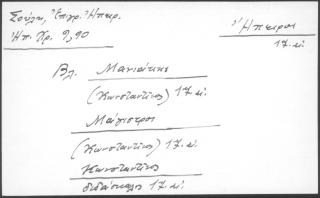 Σούλη, Ἐπιγρ. Ἠπειρ.
Ἠπ. Χρ. 9, 90
Ἤπειρος
17. αἰ.
Βλ. Μανιάκης
(Κωνσταντῖνος) 17. αἰ.
Μάγιστροι
(Κωνσταντῖνος) 17. αἰ.
Κωνσταντῖνος
διδάσκαλος 17. αἰ.